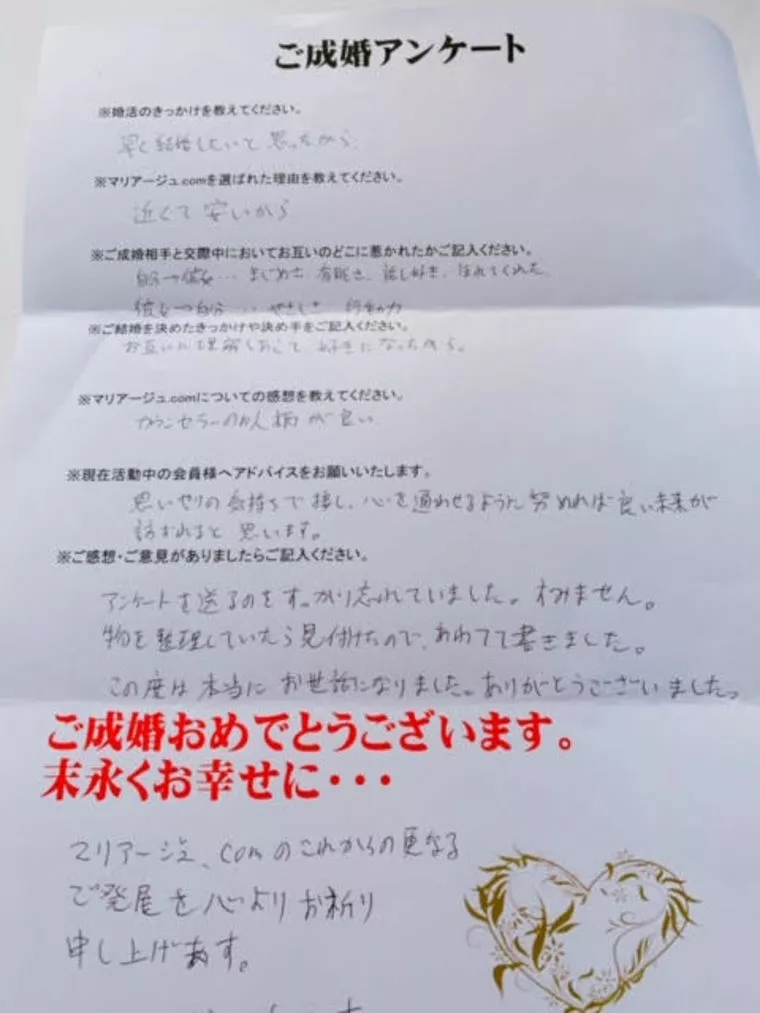 ご成婚アンケート
※婚活のきっかけを教えてください。
早く結婚したいと思ったから
※マリアージュ.comを選ばれた理由を教えてください。
近くて安いから
※ご成婚相手と交際中においてお互いのどこに惹かれたかご記入ください。
自分→彼女… まじめさ、有能さ、話し好き、ほれてくれた
彼女→自分… やさしさ 行動力
※ご結婚を決めたきっかけや決め手をご記入ください。
お互いに理解しあって 好きになったから。
※マリアージュ.comについての感想を教えてください。
カウンセラーの人柄が良い
※現在活動中の会員様へアドバイスをお願いいたします。
思いやりの気持ちで接し、心を通わせるように努めれば良い未来が
訪れると思います。
※ご感想・ご意見がありましたらご記入ください。
アンケートを送るのをすっかり忘れていました。すみません。
物を整理していたら見付けたので、あわてて書きました。
この度は本当にお世話になりました。ありがとうございました。
ご成婚おめでとうございます。
末永くお幸せに・・・
マリアージュ.comのこれからの更なる
ご発展を心よりお祈り
申し上げます。